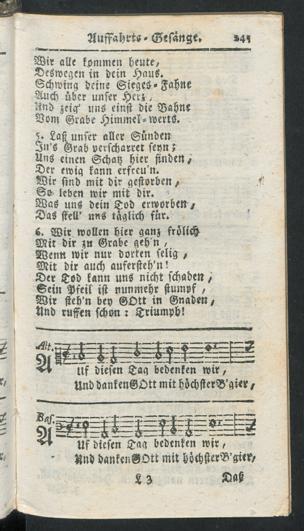 Auffahrts-Gesänge. 245
Wir alle kommen heute,
Deswegen in dein Haus.
Schwing deine Sieges-Fahne
Auch über unser Herz,
Und zeig' uns einst die Bahne
Vom Grabe Himmel-werts.
5. Laß unser aller Sünden
In's Grab verscharret seyn;
Uns einen Schatz hier finden,
Der ewig kann erfreu'n.
Wir sind mit dir gestorben,
So leben wir mit dir.
Was uns dein Tod erworben,
Das stell' uns täglich für.
6. Wir wollen hier ganz frölich
Mit dir zu Grabe geh'n,
Wenn wir nur dorten selig,
Mit dir auch aufersteh'n!
Der Tod kann uns nicht schaden,
Sein Pfeil ist nunmehr stumpf,
Wir steh'n bey GOtt in Gnaden,
Und ruffen schon: Triumph!
Alt.
AUf diesen Tag bedenken wir,
Und danken GOtt mit höchster B'gier,
Baß.
AUf diesen Tag bedenken wir,
Und danken GOtt mit höchster B'gier,
L 3 Daß